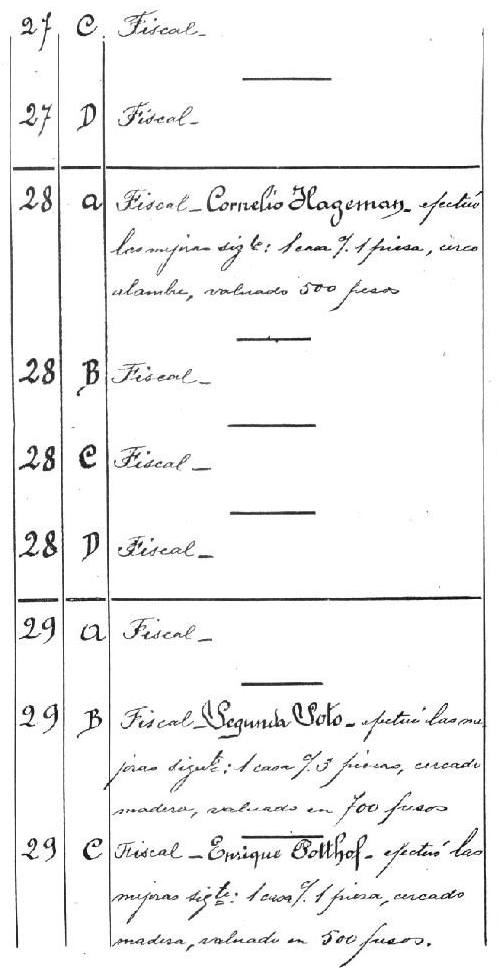 27 C Fiscal_
27 D Fiscal_
28 a Fiscal_Cornelio Hageman_ efectuó
las mejoras sigte: 1 casa %. 1 piesa, cerco
alambre, valuado 500 pesos
28 B Fiscal_
28 C Fiscal_
28 D Fiscal_
29 a Fiscal_
29 B Fiscal_Segunda Soto_ efectuó las me-
joras sigte: 1 casa %. 3 piesas, cercado
madera, valuado en 700 pesos
29 C Fiscal_Enrique Potthof_ efectuó las
mejoras sigte: 1 casa %. 1 piesa, cercado
madera, valuado en 500 pesos.